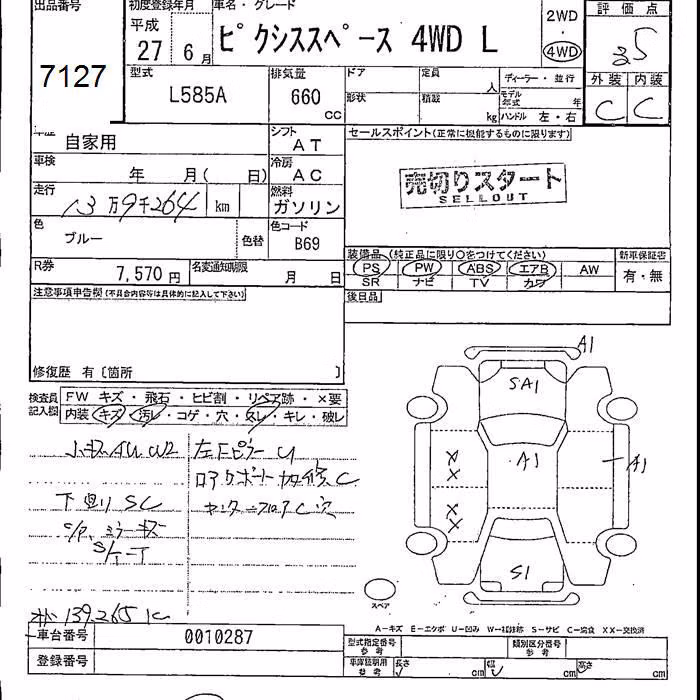 出品番号
7127
初度登録年月
平成
27 6月
車名・グレード
ピクシススペース 4WD L
2WD
4WD
評価点
3.5
外装 内装
C C
型式
L585A
排気量
660
cc
ドア
形状
定員
人
積載
kg
ディーラー・並行
モデル年式 年
ハンドル 左・右
自家用
シフト
AT
車検
年 月( 日)
冷房
AC
走行
13万9千264 km
燃料
ガソリン
色
ブルー
色替
色コード
B69
R券
7,570円
名変通知期限
月 日
セールスポイント(正常に機能するものに限ります)
売切りスタート
SELLOUT
装備品(純正品に限り○をつけてください)
PS PW ABS エアB AW
SR ナビ TV カワ
新車保証書
有・無
後日品
注意事項申告欄(不具合内容等は具体的に記入して下さい)
修復歴 有〔箇所 〕
検査員記入欄
FW キズ・飛石・ヒビ割・リペア跡・×要
内装 キズ・汚レ・コゲ・穴・スレ・キレ・破レ
小キズ
下廻り SC
139,265
A1
SA1
A1
A1
X
X
X
X
S1
スペア
A-キズ E-エクボ U-凹み W-補修跡 S-サビ C-腐食 XX-交換済
車台番号
0010287
登録番号
型式指定番号
参考
類別区分番号
参考
車庫証明用
参考
長さ cm
幅 cm
高さ cm